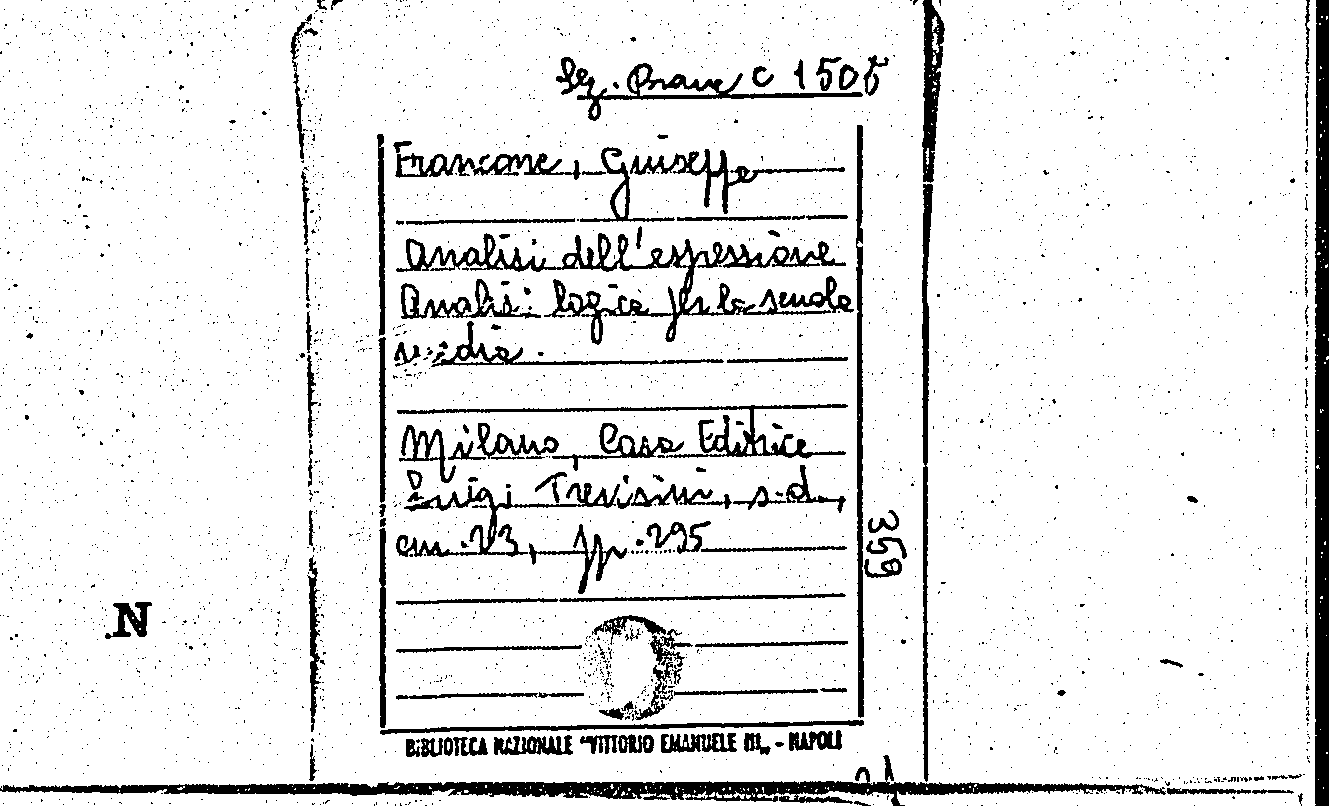 Sez. Brane C 1505
Francone, Giuseppe
Analisi dell'espressione
Analisi logica per la scuola
media.
Milano, Casa Editrice
Luigi Trevisini, s.d.,
cm. 23, pp. 295
359
N
BIBLIOTECA NAZIONALE "VITTORIO EMANUELE III„ - NAPOLI